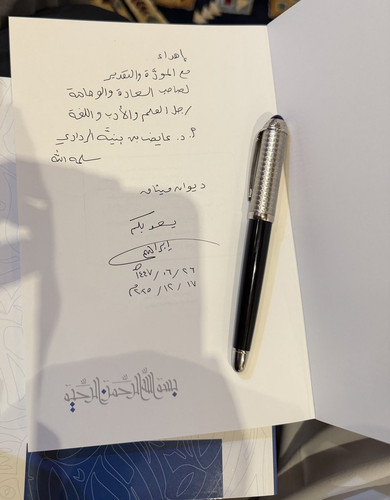 إهداء
مع المودَّة والتقدير
لصاحب السعادة والوجاهة
رجل العلم والأدب واللغة
أ. د. عايض بن بنيَّة الردادي
سلمه الله
ديوان
يسعد بكم
إبراهيم
٢٦ / ٠٦ / ١٤٤٧هـ
١٧ / ١٢ / ٢٠٢٥م
بسم الله الرحمن الرحيم